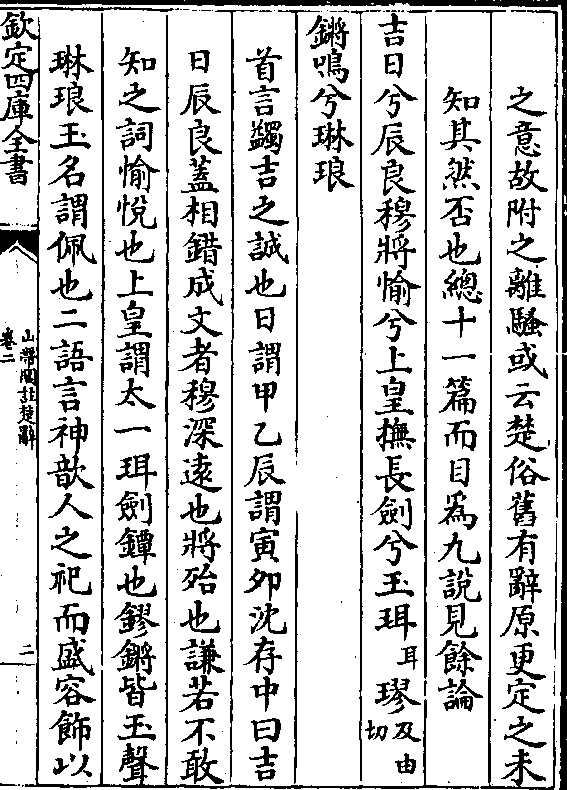 之意故附之離騷或云楚俗舊有辭原更定之未
知其然否也總十一篇而目爲九說見餘論
吉日兮辰良穆將愉兮上皇撫長劍兮玉珥耳璆及由切
鏘鳴兮琳琅
首言蠲吉之誠也日謂甲乙辰謂寅卯沈存中曰吉
日辰良蓋相錯成文者穆深遠也將殆也謙若不敢
知之詞愉悅也上皇謂太一珥劍鐔也鏐鏘皆玉聲
琳琅玉名謂佩也二語言神歆人之祀而盛容飾以
欽定四庫全書
山帶閣註楚辭
卷二
二